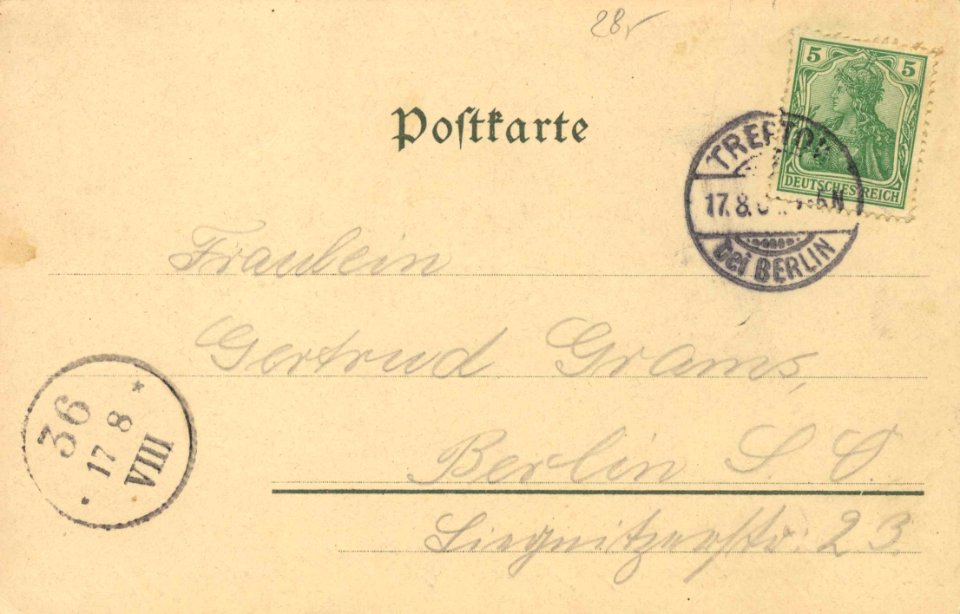 28,
Postkarte
5 5
DEUTSCHES REICH
TREPTOW
17.8. 5N
bei BERLIN
Fraulein
Gertrud Grams,
Berlin S. O.
Liegnitzerstr. 23.
36
17 8
VIII